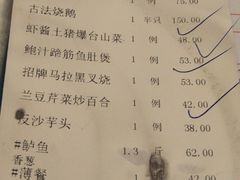 1 例 75.00
古法烧鹅 1 半只 150.00
虾酱土猪爆台山菜 1 例 48.00
鲍汁蹄筋鱼肚煲 1 例 53.00
招牌马拉黑叉烧 1 例 53.00
兰豆芹菜炒百合 1 例 42.00
反沙芋头 1 例 38.00
#鲈鱼 1.3 斤 62.00
香葱
#薄餐 1 42.00